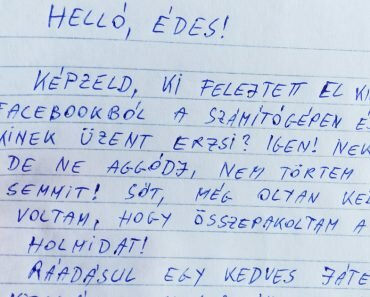 HELLÓ, ÉDES!
KÉPZELD, KI FELEJTETT EL KI
FACEBOOKBÓL A SZÁMÍTÓGÉPEN ÉS
KINEK ÜZENT ERZSI? IGEN! NEK
DE NE AGGÓDJ, NEM TÖRTEM
SEMMIT! SŐT, MÉG OLYAN KED
VOLTAM, HOGY ÖSSZEPAKOLTAM A
HOLMIDAT!
RÁADÁSUL EGY KEDVES JÁTE